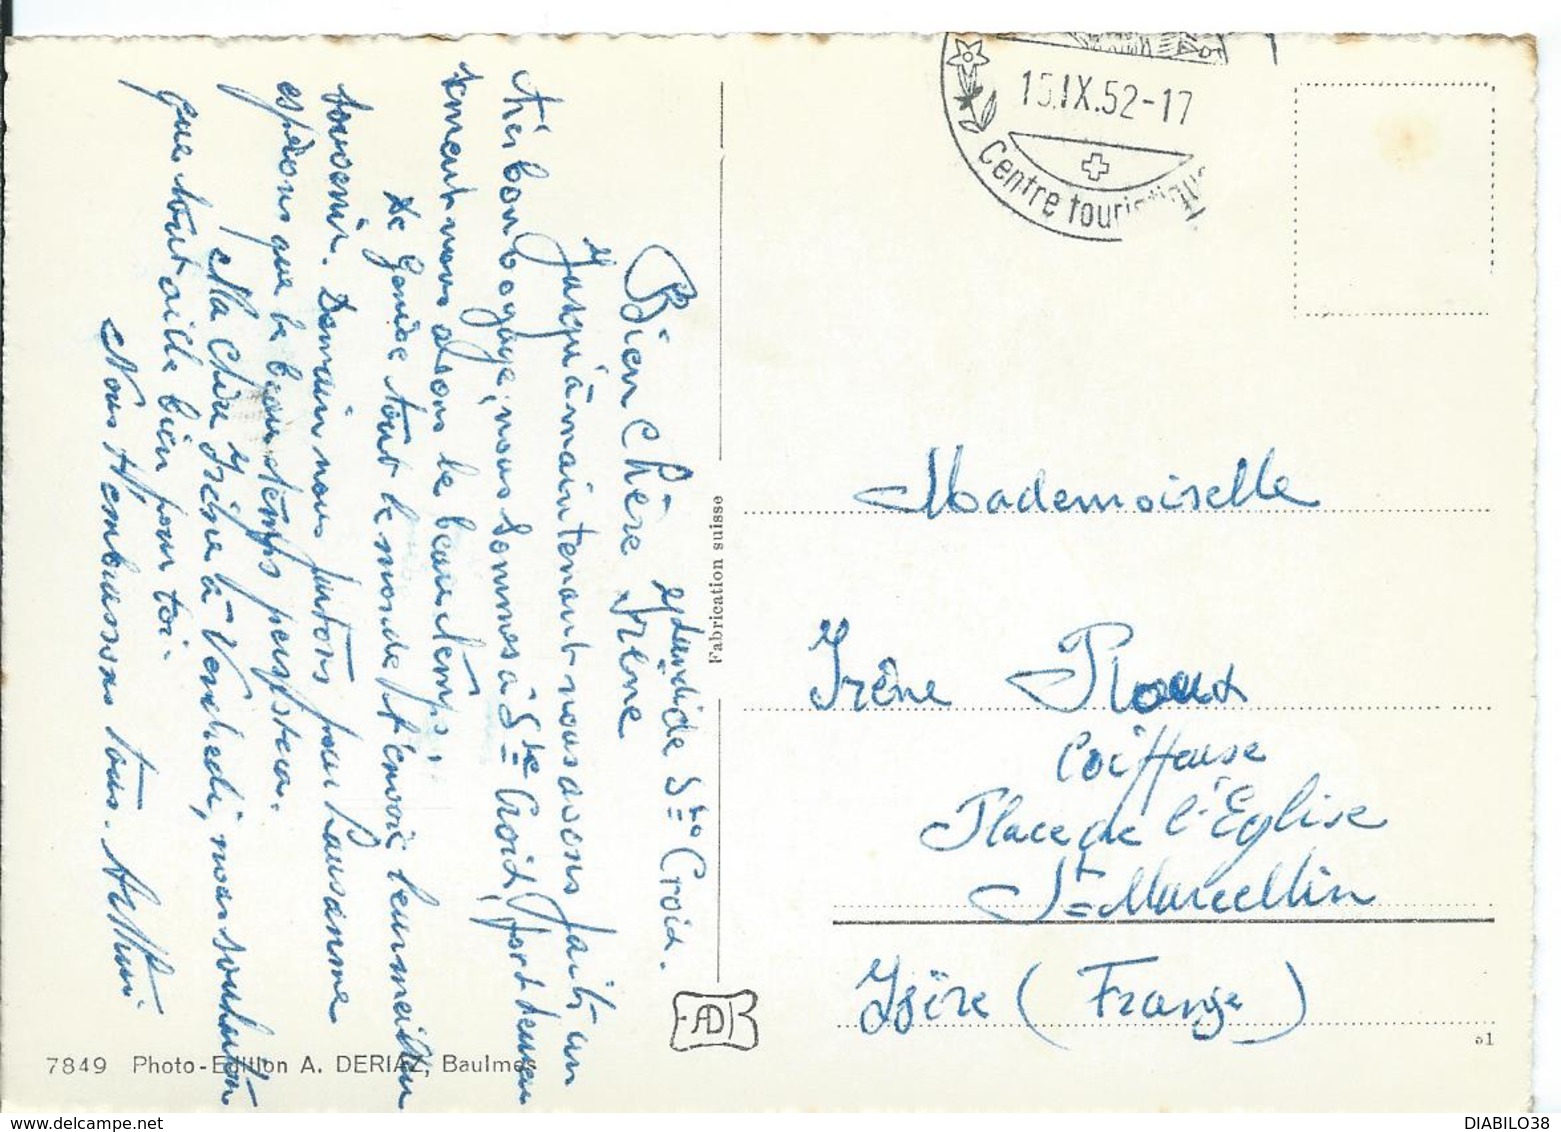 Lundi de Ste Croix.
Bien chère Irène
Jusqu'à maintenant nous avons fait un
très bon voyage, nous sommes à Ste Croix, fort heureu
sement nous avons le beau temps.
De Genève tout le monde t'envoie leur meilleur
souvenir. Demain nous partons pour Lausanne
espérons que le beau temps persistera.
Ma chère Irène à Vendredi, nous souhaitons
que tout aille bien pour toi.
Nous t'embrassons tous.
15.IX.52-17
Centre touristique
Fabrication suisse
Mademoiselle
Irène Roux
Coiffeuse
Place de l'Eglise
St Marcellin
Isère (France)
AD
7849 Photo-Edition A. DERIAZ, Baulmes
51
DIABILO38